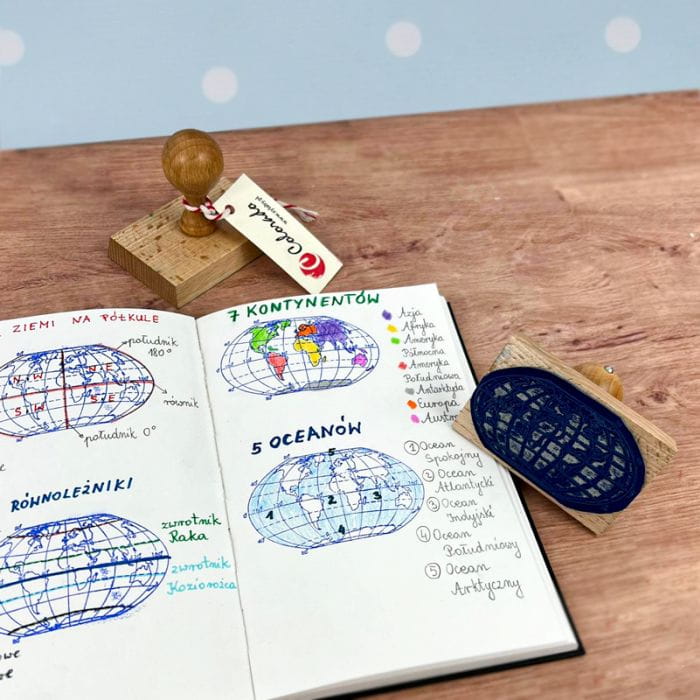 Colorado
ZIEMI NA PÓŁKULE
południk
180°
N W
N E
S W
S E
równik
południk 0°
RÓWNOLEŻNIKI
zwrotnik
Raka
zwrotnik
Koziorożca
7 KONTYNENTÓW
Azja
Afryka
Ameryka
Północna
Ameryka
Południowa
Antarktyda
Europa
Austr
5 OCEANÓW
5
1
2
3
4
1 Ocean
Spokojny
2 Ocean
Atlantycki
3 Ocean
Indyjski
4 Ocean
Południowy
5 Ocean
Arktyczny